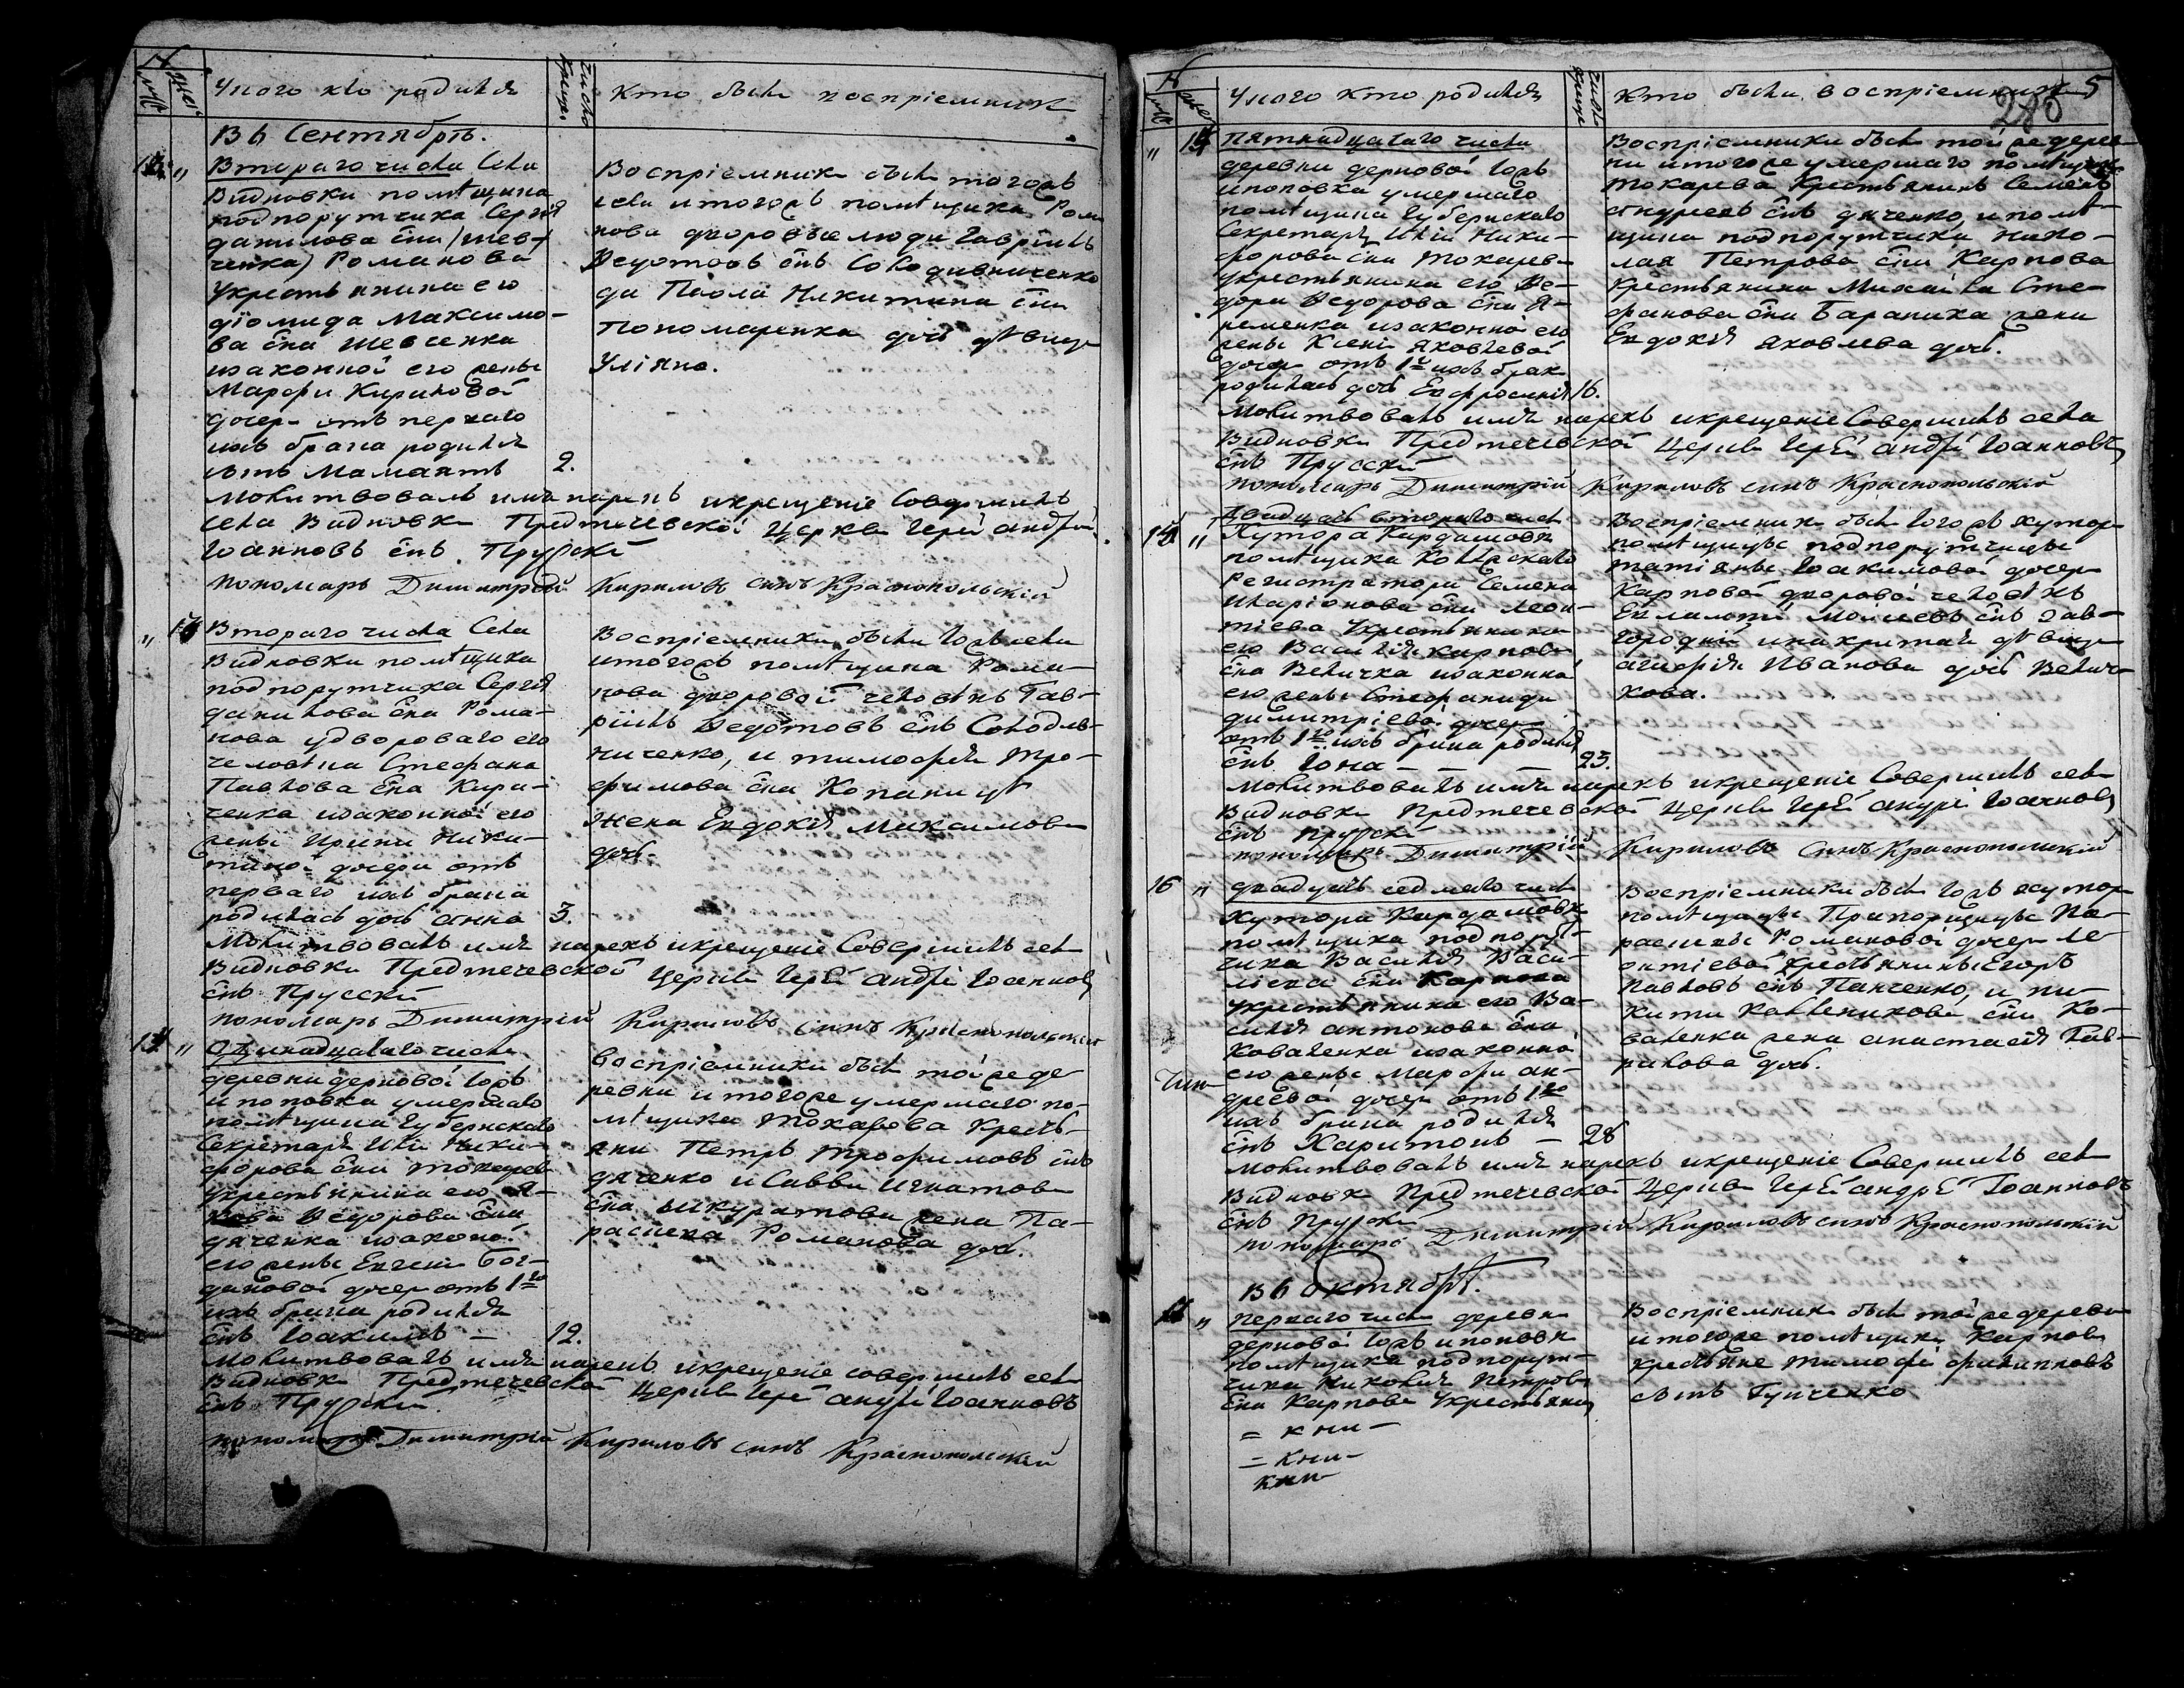 У кого кто родился
Кто были восприемники
Въ Сентябрѣ.
Втораго числа Села
Видновки помѣщика
подпорутчика Сергія
данилова сна (шев-
ченка) Романова
Укрестьянина его
діомида Максимо-
ва сна Шевченка
изаконной его жены
Марфи Кириловой
дочери отъ перваго
ихъ брака родился
сынъ Мамантъ 2.
Воспріемники были тогожъ
села итогожъ помѣщика Рома
нова дворовые люди Гавріилъ
Ѳедотовъ снъ
да Павла Никитина сна
Пономаренка дочь дѣвица
Уліяна.
Молитвовалъ имя нарекъ икрещеніе Совершилъ
села Видновки Предтечевской Церкви Іерей андрѣй
Іоанновъ снъ Прускій
пономарь Димитрій Кириловъ синъ Краснопольскій
Втораго числа Села
Видновки помѣщика
подпорутчика Сергія
данилова сна Рома-
нова удвороваго его
человѣка Стефана
Павлова сна Кири-
ченка изаконной его
жены Ирины Ники-
тиной дочери отъ
перваго ихъ брака
родилась дочь анна 3.
Воспріемники были тогожъ села
итогожъ помѣщика Рома-
нова дворовой человѣкъ Гав-
ріилъ Ѳедотовъ снъ
и тимофея Тро-
фимова сна
Жена Евдокія Максимова
дочь.
Молитвовалъ имя нарекъ икрещеніе Совершилъ села
Видновки Предтечевской Церкви Іерей андрей Іоанновъ
снъ Прусскій
пономарь Димитрій Кириловъ синъ Краснопольскій
Одинадцатаго числа
деревни дерновой Горѣ
и поповка умершаго
помѣщика Губернскаго
Секретаря Ильи Ники-
форова сна токарева
укрестьянина его Я-
кова Ѳедорова сна
дяченка изаконой
его жены Евгеніи Бог-
дановой дочери отъ 1го
ихъ брака родился
снъ Іоакимъ — 12.
Воспріемники были той же де-
ревни и тогоже умершаго по-
мѣщика Токарева Кресть-
яни Петръ трофимовъ снъ
дяченко и Саввы игнатова
сна Шкуратова жена Па-
раскева Романова дочь.
Молитвовалъ имя нарекъ икрещеніе совершилъ села
Видновки Предтечевской Церкви Іерей андрей Іоанновъ
снъ Прускій.
пономарь Димитрій Кириловъ синъ Краснопольскій
У кого кто родился
Кто были воспріемники 5
Пятнадцатаго числа
деревни дерновой Горѣ
ипоповка умершаго
помѣщика Губернскаго
Секретаря Ильи Ники-
форова сна Токарева
укрестьянина его Ѳе-
дора Ѳедорова сна Я-
ременка изаконной его
жены Ксеніи Яковлевой
дочери отъ 1го ихъ брака
родилась дочь Евфросинія 16.
Воспріемники были той же дерев-
ни итогоже умершаго помѣщика
токарева Крестьянинъ Семенъ
андреевъ снъ дяченко, и помѣ-
щика подпорутчика Нико-
лая Петрова сна Карпова
Крестьянина Михаила Сте-
фанова сна Бараника жена
Евдокія Яковлева дочь.
Молитвовалъ имя нарекъ икрещеніе Совершилъ села
Видновки Предтечевской Церкви Іерей андрѣй Іоанновъ
снъ Прусскій
пономарь Димитрій Кириловъ синъ Краснопольскій
двадцать втораго числа
Хутора Кардашовки
помѣщика Колѣжскаго
Регистратора Семена
Иларіонова сна Леон-
тіева Укрестьянина
его Василія карпова
сна Величка изаконной
его жены Стефаниды
димитріевой дочери
отъ 1го ихъ брака родился
снъ Іона — — — 23.
Воспріемники были тогожъ хутора
помѣщицы подпорутчицы
татіяны Іоакимовой дочери
Карповой дворовой человѣкъ
Моисеевъ снъ Зав-
городній дѣвица
агафія Иванова дочь Велич-
кова.
Молитвовалъ имя нарекъ икрещеніе Совершилъ села
Видновки Предтечевской Церкви Іерей андрей Іоанновъ
снъ Прускій
пономарь Димитрій Кириловъ Синъ Краснопольскій
16 двадцать седмаго числа
Хутора Кардашовки
помѣщика подпору-
чика Василія Васи-
льева сна Карпова
укрестьянина его Ва-
силія антонова сна
Коваленка изаконной
его жены Марфи ан-
дреевой дочери отъ 1го
ихъ брака родился
снъ Харитонъ — 28
Воспріемники были тогожъ хутора
помѣщицы Прапорщицы Па-
раскевы Романовой дочери Ле-
онтіевой крестьянинъ Егоръ
Павловъ снъ Панченко, и ни-
киты сна Ко-
валенка жена анастасія Гав-
рилова дочь.
Молитвовалъ имя нарекъ икрещеніе Совершилъ села
Видновки Предтечевской Церкви Іерей андрей Іоанновъ
снъ Прускій
пономарь Димитрій Кириловъ синъ Краснопольскій
Въ октябрѣ.
Перваго числа деревни
дерновой Горѣ ипоповки
помѣщика подпорут-
чика Николая Петрова
сна Карпова Укрестьяни
= кни-
= кни-
кни
Воспріемники были той же деревни
и тогоже помѣщика Карпова
крестьяне тимофей филипповъ
сынъ Гупченко